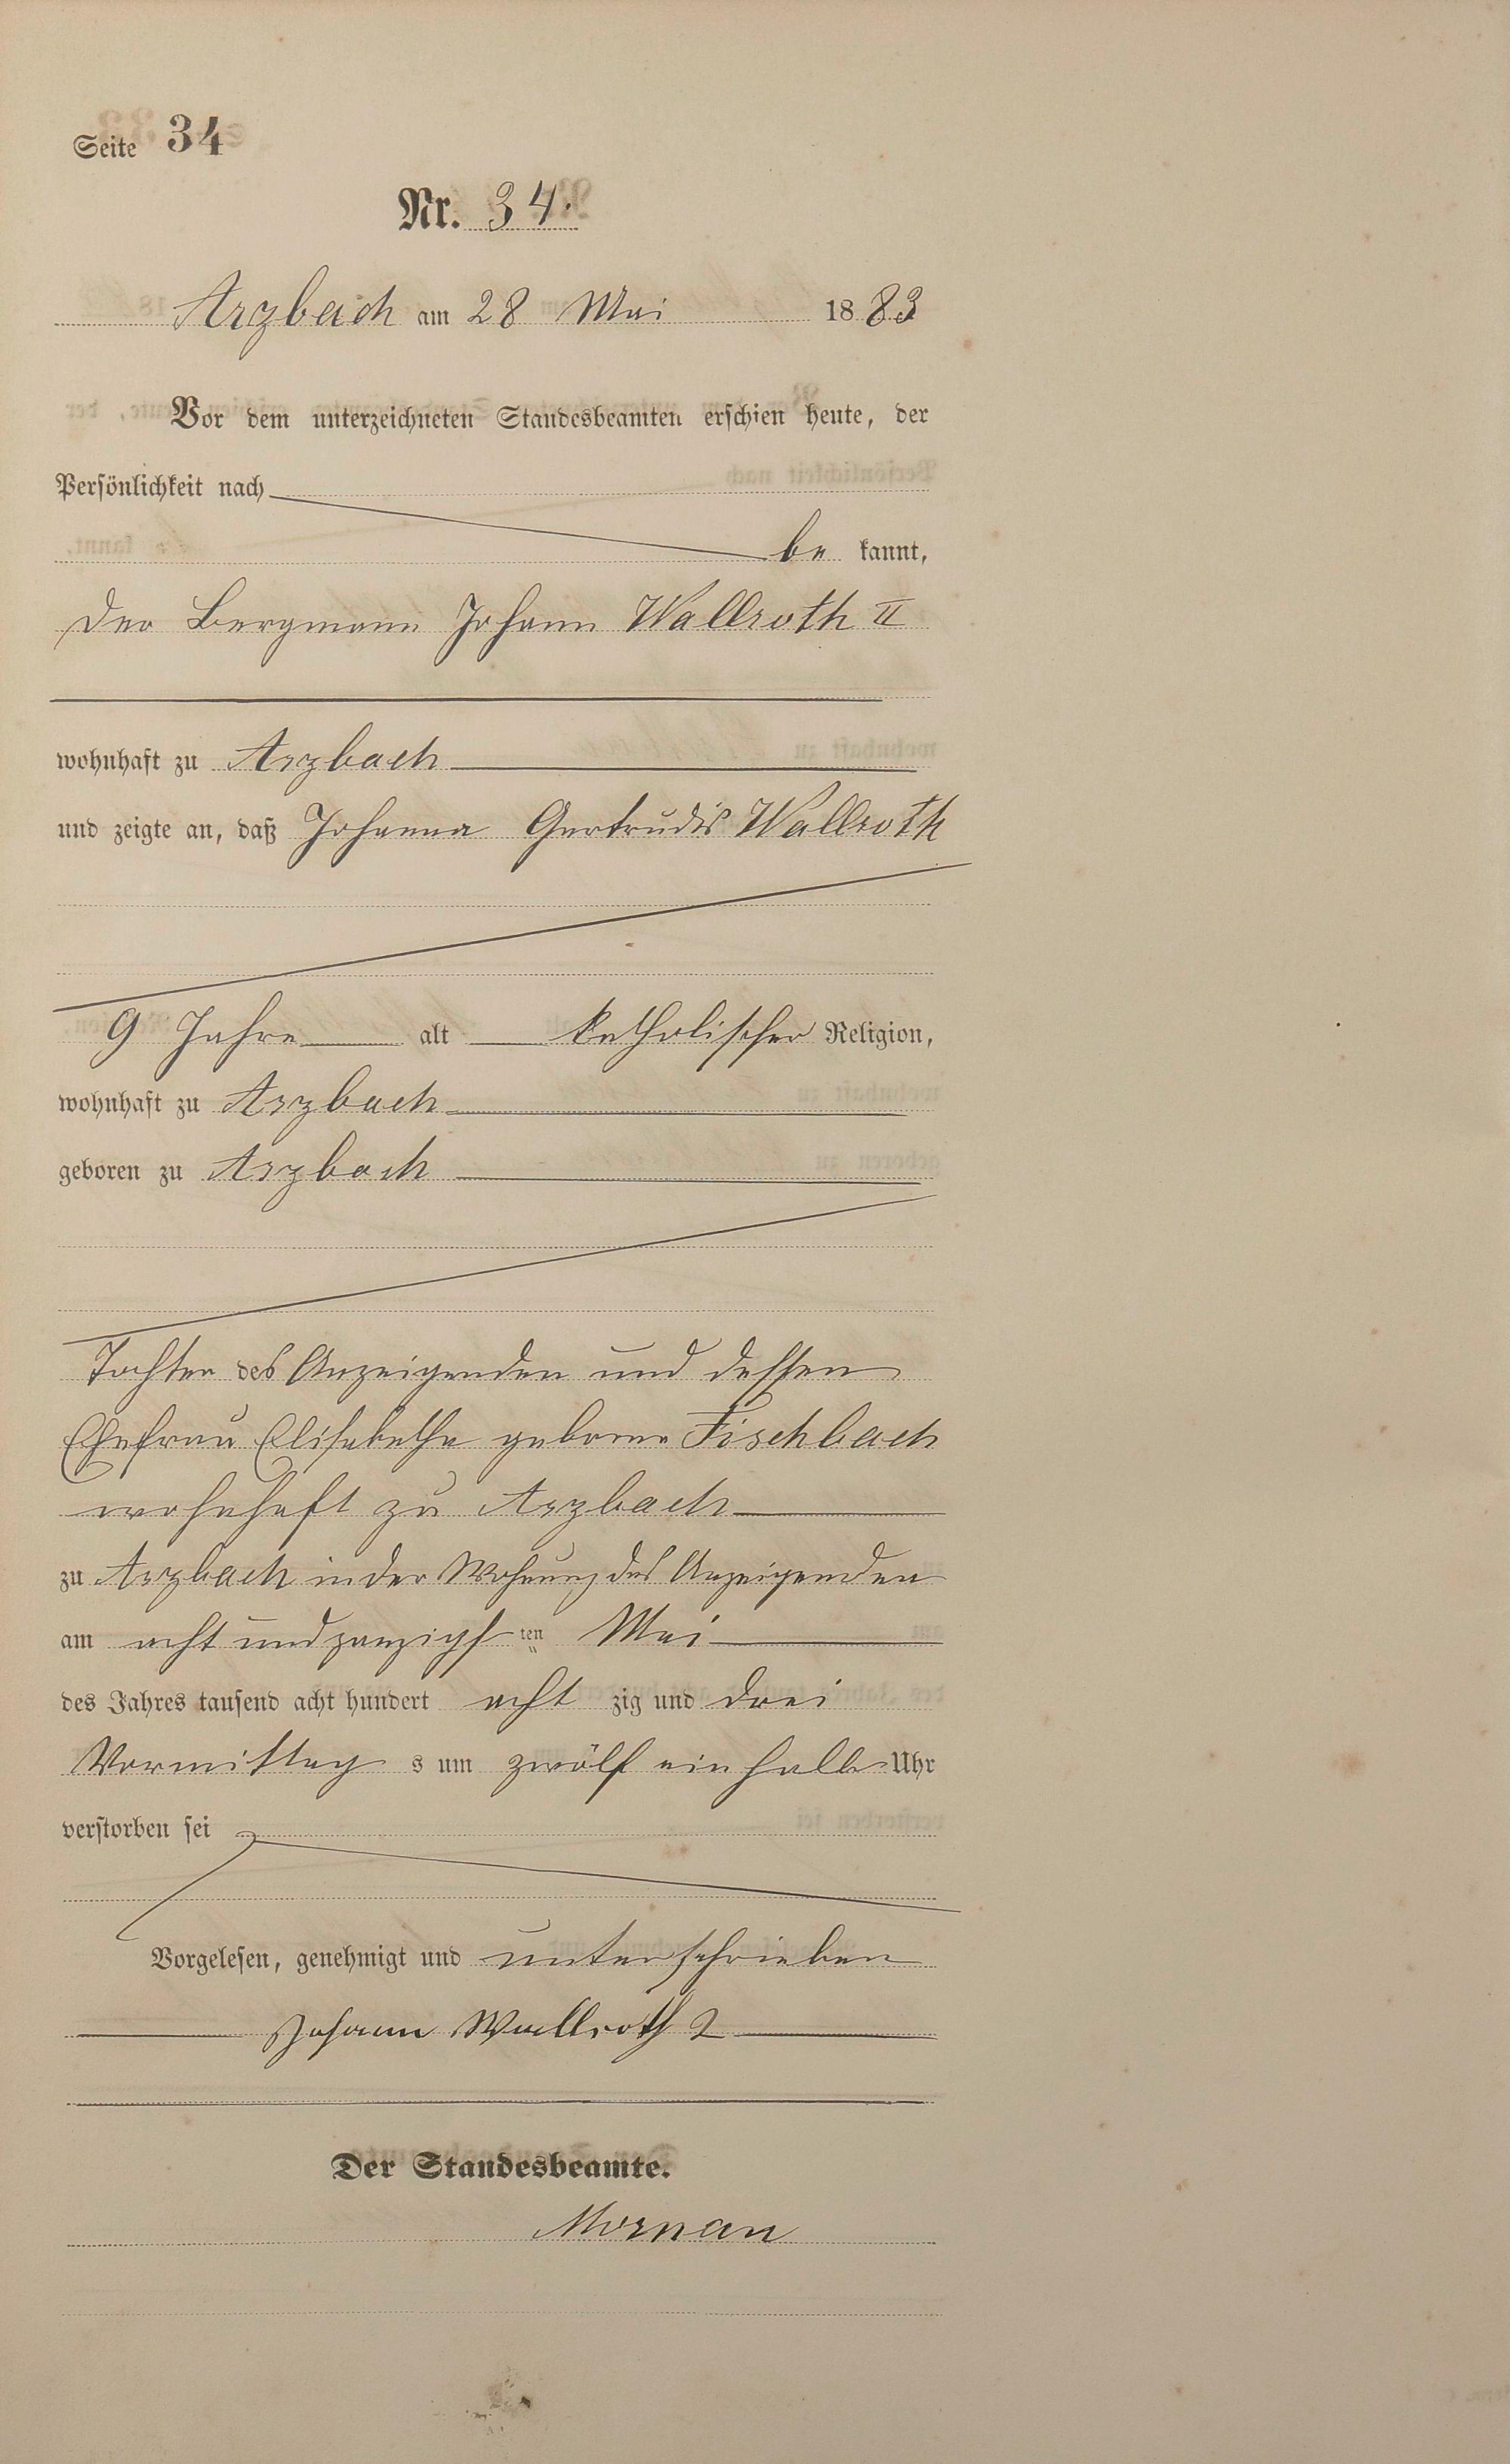 Seite 34
Nr. 34.
Arzbach am 28 Mai 1883
Vor dem unterzeichneten Standesbeamten erschien heute, der
Persönlichkeit nach
be kannt,
der Bergmann Johann Wallroth II
wohnhaft zu Arzbach
und zeigte an, daß Johanna Gertrudis Wallroth
9 Jahre alt katholischer Religion,
wohnhaft zu Arzbach
geboren zu Arzbach
Tochter des Anzeigenden und dessen
Ehefrau Elisabetha geborne Fischbach
wohnhaft zu Arzbach
zu Arzbach in der Wohnung des Anzeigenden
am acht und zwanzigsten Mai
des Jahres tausend acht hundert acht zig und drei
Vormittag s um zwölf ein halb Uhr
verstorben sei
Vorgelesen, genehmigt und unterschrieben
Johann Wallroth 2
Der Standesbeamte.
Mornan